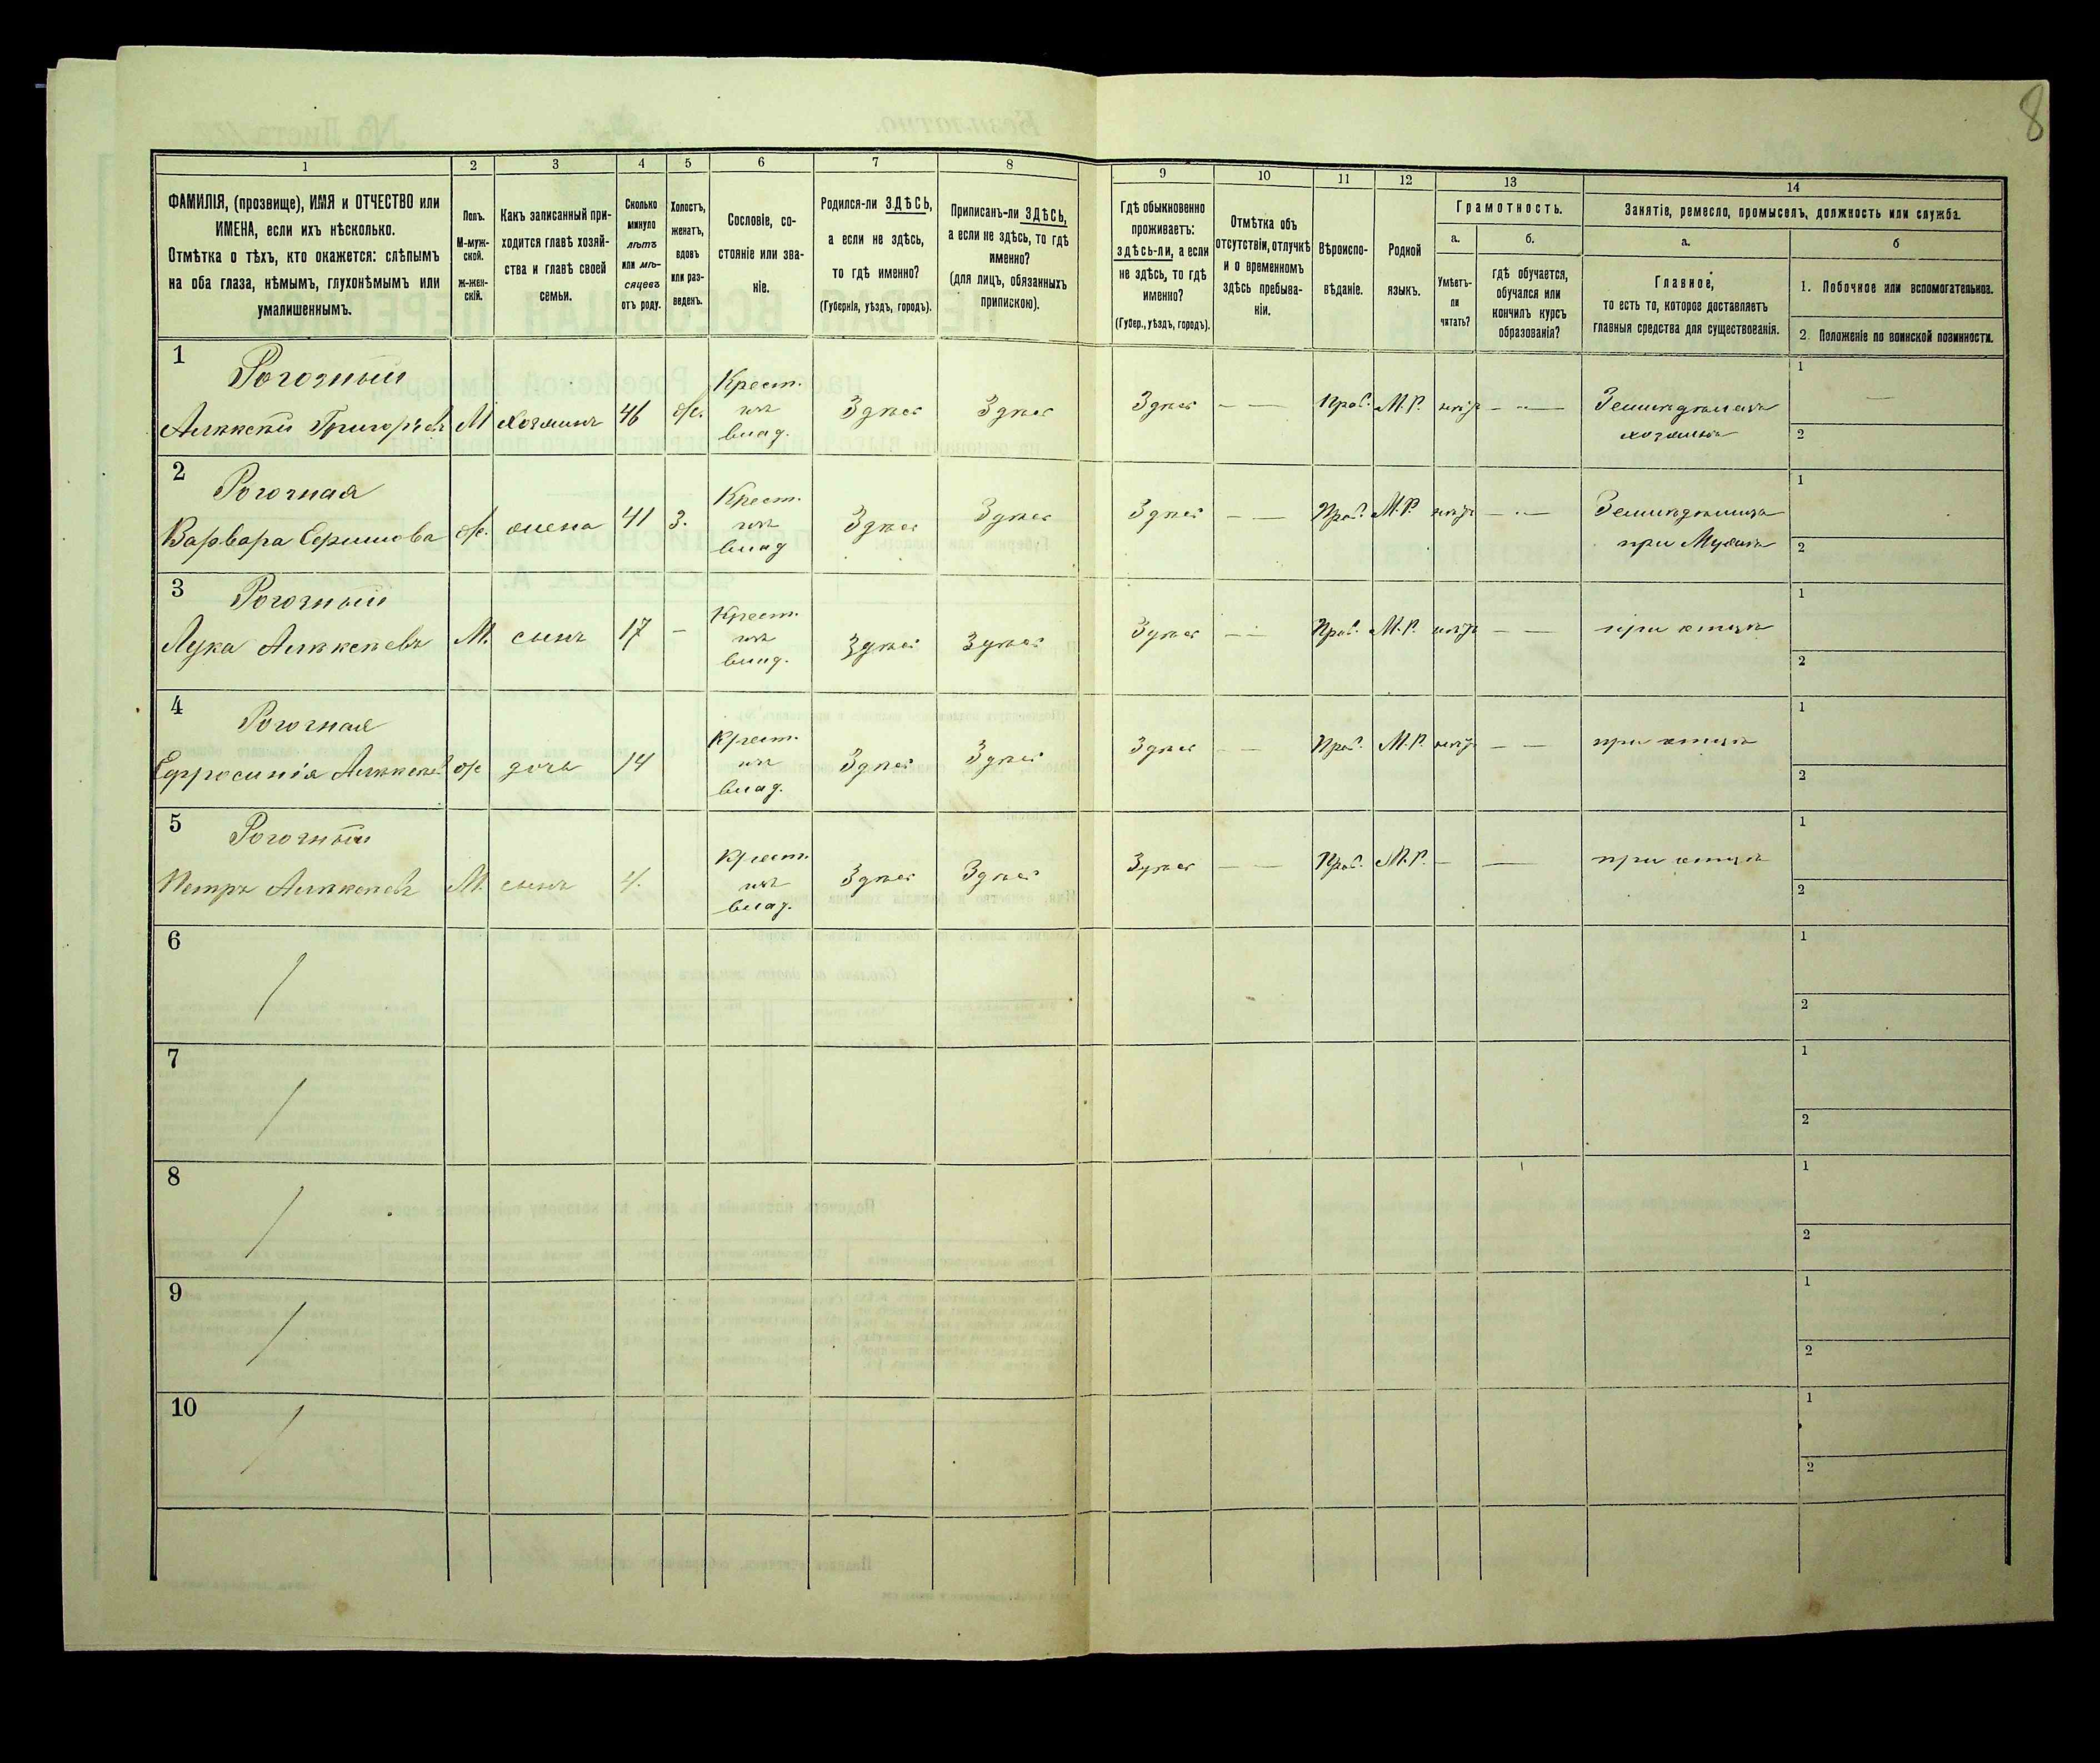 8
1 2 3 4 5 6 7 8 9 10 11 12 13 14
ФАМИЛІЯ, (прозвище), ИМЯ и ОТЧЕСТВО или
ИМЕНА, если ихъ нѣсколько.
Отмѣтка о тѣхъ, кто окажется: слѣпымъ
на оба глаза, нѣмымъ, глухонѣмымъ или
умалишеннымъ.
Полъ.
М-муж-
ской.
ж-жен-
скій.
Какъ записанный при-
ходится главѣ хозяй-
ства и главѣ своей
семьи.
Сколько
минуло
лѣтъ
или мѣ-
сяцевъ
отъ роду.
Холостъ,
женатъ,
вдовъ
или раз-
веденъ.
Сословіе, со-
стояніе или зва-
ніе.
Родился-ли ЗДѢСЬ,
а если не здѣсь,
то гдѣ именно?
(Губернія, уѣздъ, городъ).
Приписанъ-ли ЗДѢСЬ,
а если не здѣсь, то гдѣ
именно?
(для лицъ, обязанныхъ
припискою).
Гдѣ обыкновенно
проживаетъ:
здѣсь-ли, а если
не здѣсь, то гдѣ
именно?
(Губер., уѣздъ, городъ).
Отмѣтка объ
отсутствіи, отлучкѣ
и о временномъ
здѣсь пребыва-
ніи.
Вѣроиспо-
вѣданіе.
Родной
языкъ.
Грамотность.
а.
Умѣетъ-
ли
читать?
б.
гдѣ обучается,
обучался или
кончилъ курсъ
образованія?
Занятіе, ремесло, промыселъ, должность или служба.
а.
Главное,
то есть то, которое доставляетъ
главныя средства для существованія.
б
1. Побочное или вспомогательное.
2. Положеніе по воинской повинности.
1
Рогозный
Алексѣй Григорьевъ М хозяинъ 46 ж.
Крест.
изъ
влад.
Здѣсь Здѣсь Здѣсь — — Прав. М.Р. нѣтъ — —
Земледѣлецъ
хозяинъ
1 —
2
2
Рогозная
Варвара Ефимова ж. жена 41 з.
Крест.
изъ
влад
Здѣсь Здѣсь Здѣсь — — Прав. М.Р. нѣтъ — —
Земледѣлица
при Мужѣ
1
2
3
Рогозный
Лука Алексѣевъ М. сынъ 17 —
Крест.
изъ
влад.
Здѣсь Здѣсь Здѣсь — — Прав. М.Р. нѣтъ — — при отцѣ
1
2
4
Рогозная
Ефросинія ж дочь 14
Крест.
изъ
влад.
Здѣсь Здѣсь Здѣсь — — Прав. М.Р. нѣтъ — — при отцѣ
1
2
5
Рогозный
Петръ Алексѣевъ М. сынъ 4.
Крест.
изъ
влад.
Здѣсь Здѣсь Здѣсь — — Прав. М.Р. — — при отцѣ
1
2
6
1
2
7
1
2
8
1
2
9
1
2
10
1
2